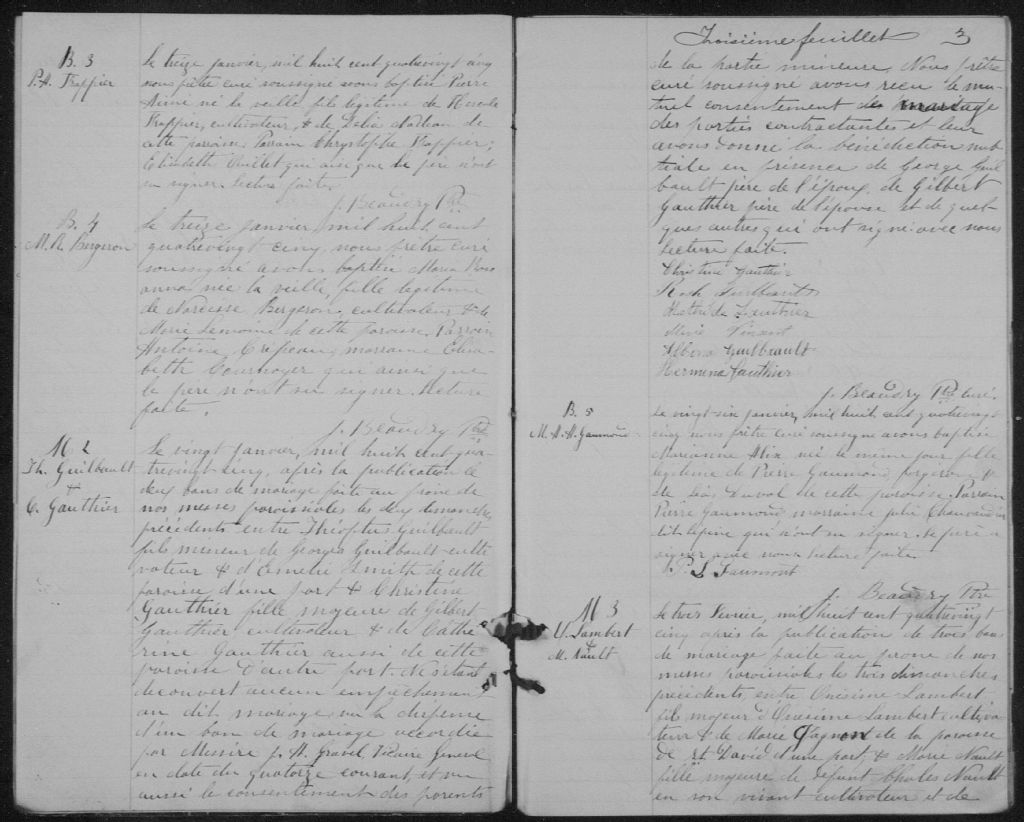 B. 3
P. A. Frappier
Le treize janvier, mil huit cent quatrevingt cinq
nous prêtre curé soussigné avons baptisé Pierre
Aimé né la veille, fils légitime de Hercule
Frappier, cultivateur, & de Délia Nadeau de
cette paroisse. Parrain Chrystophe Frappier;
Elisabeth Ouellet qui ainsi que le père n'ont
su signer. Lecture faite.
J. Beaudry Ptre
B. 4
M. R. Bergeron
Le treize janvier, mil huit cent
quatrevingt cinq, nous prêtre curé
soussigné avons baptisé Maria Rose
anna née la veille, fille légitime
de Narcisse Bergeron, cultivateur & de
Marie Lemoine de cette paroisse. Parrain
Antoine Crépeau, marraine Elisa-
beth Cournoyer qui ainsi que
le père n'ont su signer. Lecture
faite.
J. Beaudry Ptre
M 2
Th. Guilbault
+
C. Gauthier
Le vingt janvier, mil huit cent qua-
trevingt cinq, après la publication de
deux bans de mariage faite au prône de
nos messes paroissiales les deux dimanches
précédents entre Théophus Guilbault
fils mineur de Georges Guilbault culti-
vateur & d'Emélie Smith de cette
paroisse d'une part & Christine
Gauthier fille majeure de Gilbert
Gauthier cultivateur & de Cathe
rine Gauthier aussi de cette
paroisse d'autre part. N'étant
découvert aucun empêchement
au dit mariage vu la dispense
d'un ban de mariage accordée
par Messire J. H. Gravel Vicaire Général
en date du quatorze courant, et vu
aussi le consentement des parents
Troisième feuillet 3
de la partie mineure, Nous prêtre
curé soussigné avons reçu le mu-
tuel consentement de mariage
des parties contractantes et leur
avons donné la bénédiction nup
tiale en présence de George Guil
bault père de l'époux, de Gilbert
Gauthier père de l'épouse et de quel-
ques autres qui ont signé avec nous
Lecture faite.
Christine Gauthier
Guilbault
Gauthier
Vincent
Albina Guilbeault
Hermina Gauthier
J. Beaudry Ptre curé.
B. 5
M. A. A. Gaumond
Le vingt-six janvier, mil huit cent quatrevingt
cinq nous prêtre curé soussigné avons baptisé
Marianne Alix née le même jour fille
légitime de Pierre Gaumond forgeron &
de Léas Duval de cette paroisse. Parrain
Pierre Gaumond, marraine Julie
dit Lépine qui n'ont su signer. Le père a
signé avec nous. Lecture faite.
P. L Gaumont
J. Beaudry Ptre
M 3
U. Lambert
&
M. Nault
Le trois Février, mil huit cent quatrevingt
cinq après la publication de trois bans
de mariage faite au prône de nos
messes paroissiales les trois dimanches
précédents, entre Onésime Lambert
fils majeur d'Onésime Lambert cultiva-
teur & de Marie Gagnon de la paroisse
de St. David d'une part, & Marie Nault
fille majeure de défunt Charles Nault
en son vivant cultivateur et de